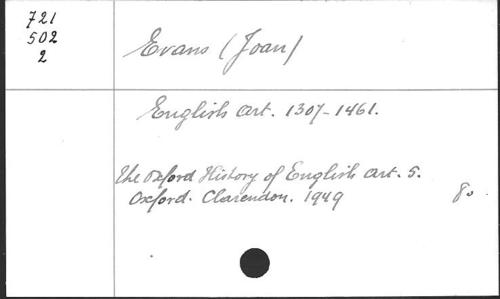 721
502
2
Evans (Joan)
English art. 1307-1461.
The Oxford History of English art. 5.
Oxford. Clarendon. 1949 8o